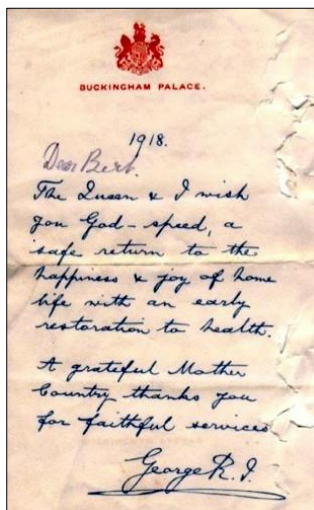 BUCKINGHAM PALACE.
1918.
Dear Bert.
The Queen & I wish
you God-speed, a
safe return to the
happiness & joy of home
life with an early
restoration to health.
A grateful Mother
Country thanks you
for faithful services
George R. I.